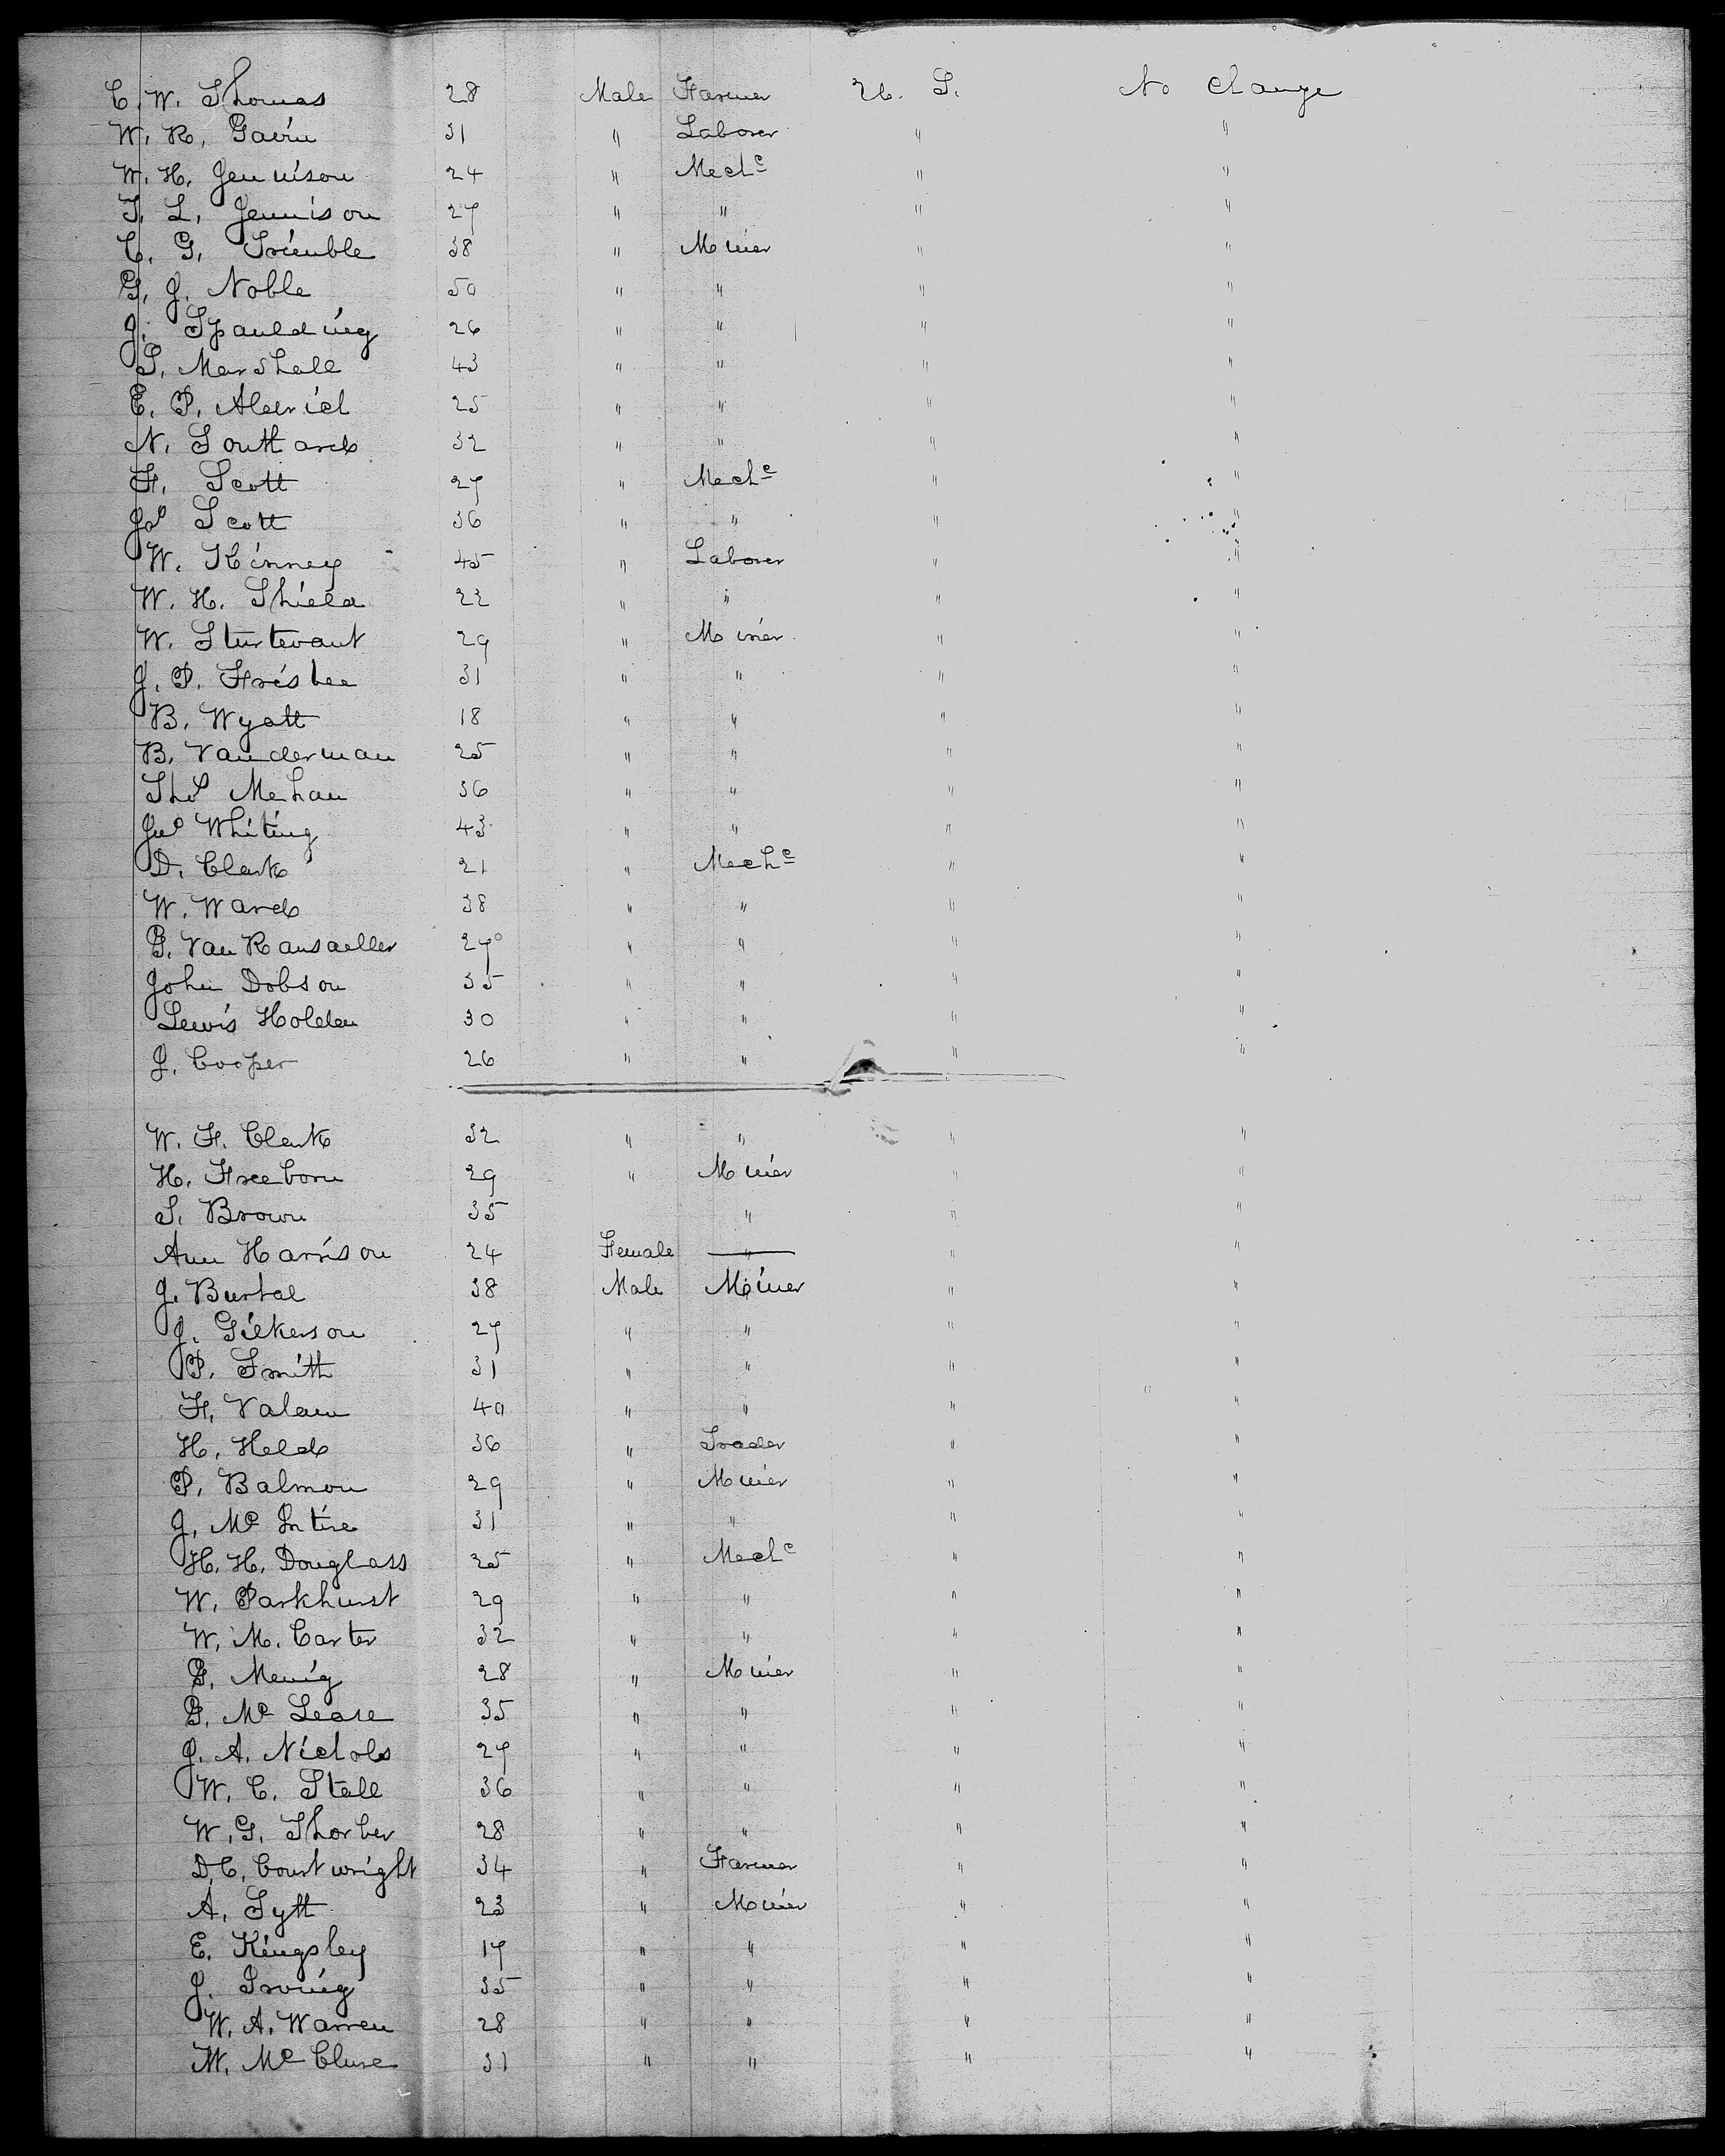 C. W. Thomas 28 Male Farmer U. S. No Change
W. R. Gavin 31 " Laborer " "
W. H. Jennison 24 " Mechc " "
T. L. Jennison 27 " " " "
C. G. Trimble 38 " Miner " "
G. J. Noble 50 " " " "
J. Spaulding 26 " " " "
S. Marshall 43 " " " "
E. P. Aldrich 25 " " " "
N. Southard 32 " " " "
F. Scott 27 " Mechc " "
Jas Scott 36 " " " "
W. Kinney 45 " Laborer " "
W. H. Shield 22 " " " "
W. Sturtevant 29 " Miner " "
J. P. Frisbee 31 " " " "
B. Wyatt 18 " " " "
B. Vanderman 25 " " " "
Thos Mehan 36 " " " "
Jno Whiting 43 " " " "
D. Clark 21 " Mechc " "
W. Ward 38 " " " "
G. Van Ransaeller 27 " " " "
John Dobson 35 " " " "
Lewis Holden 30 " " " "
J. Cooper 26 " " " "
W. F. Clark 32 " " " "
H. Freeborn 29 " Miner " "
S. Brown 35 " " "
Ann Harrison 24 Female " " "
J. Burtal 38 Male Miner " "
J. Gilkerson 27 " " " "
P. Smith 31 " " " "
F. Valam 40 " " " "
H. Held 36 " Trader " "
P. Balmon 29 " Miner " "
J. Mc Intire 31 " " " "
H. H. Douglass 25 " Mechc " "
W. Parkhurst 29 " " " "
W. M. Carter 32 " " " "
G. Menig 28 " Miner " "
G. Mc Lease 35 " " " "
J. A. Nichols 27 " " " "
W. C. Stall 36 " " " "
W. G. Thorber 28 " " " "
D. C. Courtwright 34 " Farmer " "
A. Tytt 23 " Miner " "
E. Kingsley 17 " " " "
J. Irving 35 " " " "
W. A. Warren 28 " " " "
W. Mc Clure 31 " " " "